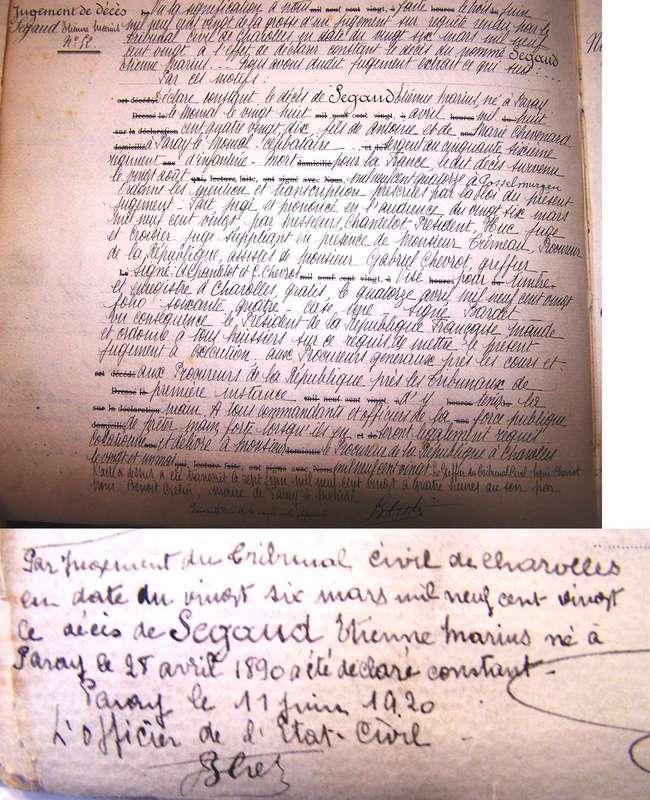 Jugement de décès
Segaud Etienne Marius
N° 52
Vu la signification à nous faite
mil neuf cent vingt de la grosse d'un jugement sur requête rendu par le
tribunal civil de Charolles en date du vingt six mars mil neuf
cent vingt à l'effet de déclarer constant le décès du nommé Segaud
Etienne Marius dudit jugement extrait ce qui suit :
Par ces motifs :
Déclare constant le décès de Segaud Etienne Marius né à Paray
le Monial le vingt huit avril mil huit
cent quatre vingt dix fils de Antoine et de Marie Chevenard
à Paray le Monial, célibataire sergent au cinquante sixième
régiment d'infanterie mort pour la France le dit décès survenu
le vingt août mil neuf cent quatorze à Gosselmingen
Ordonne les mention et transcription prescrites par la loi du présent
jugement. Fait jugé et prononcé en l'audience du vingt six mars
mil neuf cent vingt, par Messieurs Chantelot, Président, Huc juge
et Croisier juge suppléant en présence de Monsieur Procureur
de la République, assistés de Monsieur Gabriel Chevrot, greffier
Signé : A. Chantelot et G. Chevrot. Visé pour timbre
et enregistré à Charolles, gratis, le quatorze avril mil neuf cent vingt
folio soixante quatre case signé Bardet
En conséquence le Président de la République Française mande
et ordonne à tous huissiers sur ce requis de mettre le présent
jugement à exécution aux Procureurs généraux près les cours et
aux Procureurs de la République près les tribunaux de
première instance d'y tenir la
main. A tous commandants et officiers de la force publique
de prêter main forte lorsqu'ils en seront légalement requis
Collationné et délivré à Monsieur le Procureur de la République à Charolles
le vingt et un mai mil neuf cent vingt Le Greffier du Tribunal Civil signé Chevrot
transcrit le sept juin mil neuf cent vingt à quatre heures du soir par
nous Benoit Cretin, maire de Paray le Monial
Par jugement du Tribunal civil de Charolles
en date du vingt six mars mil neuf cent vingt
le décès de Segaud Etienne Marius né à
Paray le 28 avril 1890 a été déclaré constant -
Paray le 11 juin 1920
L'officier de l'Etat-Civil -